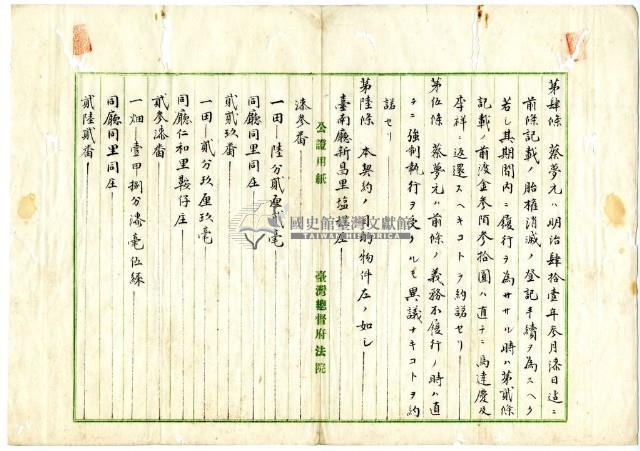 第肆條 蔡夢元ハ明治肆拾壹年參月漆日迄ニ
前條記載ノ胎權消滅ノ登記手續ヲ為スヘク
若シ其期間內ニ履行ヲ為サヽル時ハ第貳條
記載ノ前渡金參陌參拾圓ハ直チニ馬達慶及
李祥ニ返還スヘキコトヲ約諾セリ
第伍條 蔡夢元ハ前條ノ義務不履行ノ時ハ直
チニ強制執行ヲ受クルモ異議ナキコトヲ約
諾セリ
第陸條 本契約ノ目的物件左ノ如シ
臺南廳新昌里塩埕庄
公證用紙 臺灣總督府法院
漆參番
一田 陸分貳厘貳毫
同廳同里同庄
貳貳玖番
一田 貳分玖厘玖毫
同廳仁和里鞍仔庄
貳參漆番
一畑 壹甲捌分漆毫伍絲
同廳同里同庄
貳陸貳番
國史館臺灣文獻館
TAIWAN HISTORICA